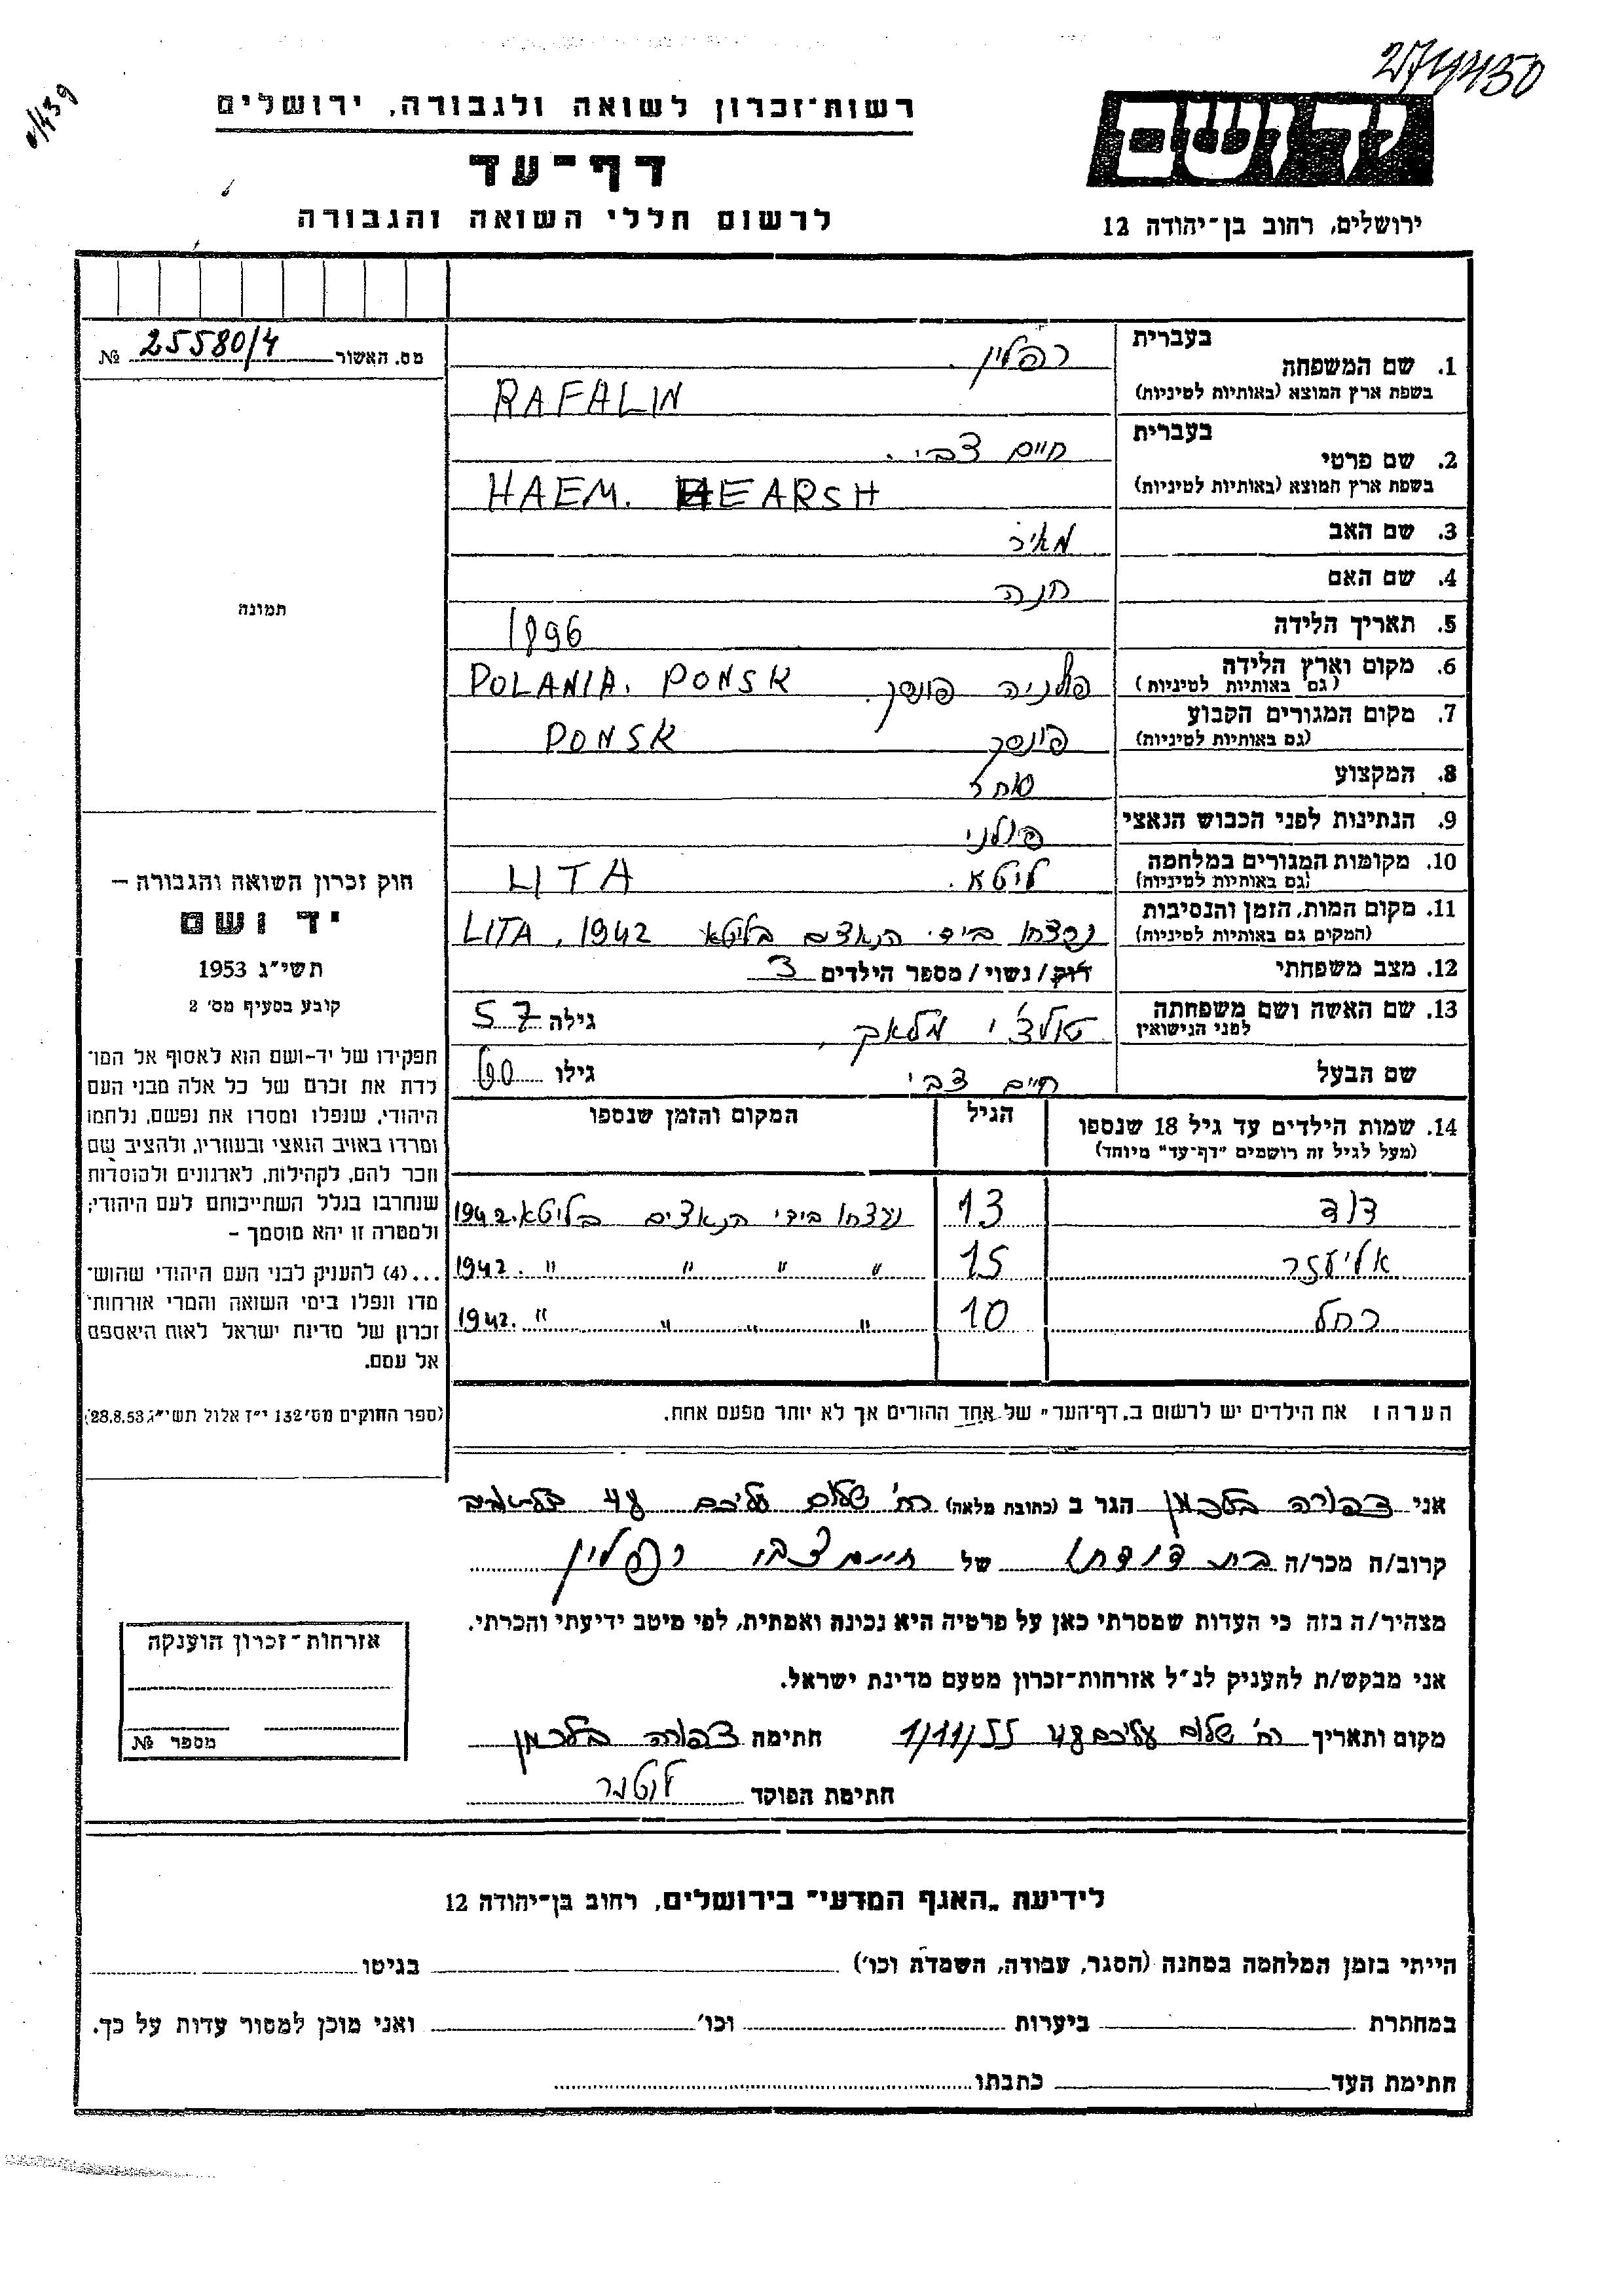 274450
0/439
רשות־זכרון לשואה ולגבורה, ירושלים
דף־עד
לרשום חללי השואה והגבורה
יד ושם
ירושלים, רחוב בן־יהודה 12
מס. האשור 25580/4 №
תמונה
חוק זכרון השואה והגבורה —
יד ושם
תשי״ג 1953
קובע בסעיף מס׳ 2
תפקידו של יד-ושם הוא לאסוף אל המו־
לדת את זכרם של כל אלה מבני העם
היהודי, שנפלו ומסרו את נפשם, נלחמו
ומרדו באויב הנאצי ובעוזריו, ולהציב שם
וזכר להם, לקהילות, לארגונים ולמוסדות
שנחרבו בגלל השתייכותם לעם היהודי;
ולמטרה זו יהא מוסמך –
...(4) להעניק לבני העם היהודי שהוש־
מדו ונפלו בימי השואה והמרי אזרחות־
זכרון של מדינת ישראל לאות היאספם
אל עמם.
(ספר החוקים מס׳ 132 י״ז אלול תשי״ג 28.8.53)
1. שם המשפחה בעברית רפלין.
בשפת ארץ המוצא (באותיות לטיניות) RAFALIN
2. שם פרטי בעברית חיים צבי.
בשפת ארץ המוצא (באותיות לטיניות) HAEM. HEARSH
3. שם האב מאיר
4. שם האם חנה
5. תאריך הלידה 1896
6. מקום וארץ הלידה (גם באותיות לטיניות) פולניה פונסק. POLANIA. PONSK
7. מקום המגורים הקבוע (גם באותיות לטיניות) פונסק PONSK
8. המקצוע סוחר
9. הנתינות לפני הכבוש הנאצי פולני
10. מקומות המגורים במלחמה (גם באותיות לטיניות) ליטא. LITA
11. מקום המות, הזמן והנסיבות (המקום גם באותיות לטיניות) נרצחו בידי הנאצים בליטא LITA, 1942
12. מצב משפחתי רוק/נשוי/מספר הילדים 3
13. שם האשה ושם משפחתה לפני הנישואין גילה 57
שם הבעל חיים צבי גילו 60
14. שמות הילדים עד גיל 18 שנספו הגיל המקום והזמן שנספו
(מעל לגיל זה רושמים "דף-עד" מיוחד)
דוד 13 נרצחו בידי הנאצים בליטא. 1942
אליעזר 15 " " " " 1942.
רחל 10 " " " " 1942.
הערה: את הילדים יש לרשום ב„דף־העד״ של אחד ההורים אך לא יותר מפעם אחת.
אני צפורה הגר ב (כתובת מלאה) רח׳ שלום עליכם 48
קרוב/ה מכר/ה בת דודתו של חיים צבי רפלין
מצהיר/ה בזה כי העדות שמסרתי כאן על פרטיה היא נכונה ואמתית, לפי מיטב ידיעתי והכרתי.
אני מבקש/ת להעניק לנ״ל אזרחות־זכרון מטעם מדינת ישראל.
מקום ותאריך רח׳ שלום עליכם 48 1/11/55 חתימה צפורה
חתימת הפוקד
אזרחות־זכרון הוענקה
מספר №
לידיעת „האגף המדעי״ בירושלים, רחוב בן־יהודה 12
הייתי בזמן המלחמה במחנה (הסגר, עבודה, השמדה וכו׳) בגיטו
במחתרת ביערות וכו׳ ואני מוכן למסור עדות על כך.
חתימת העד כתבתו